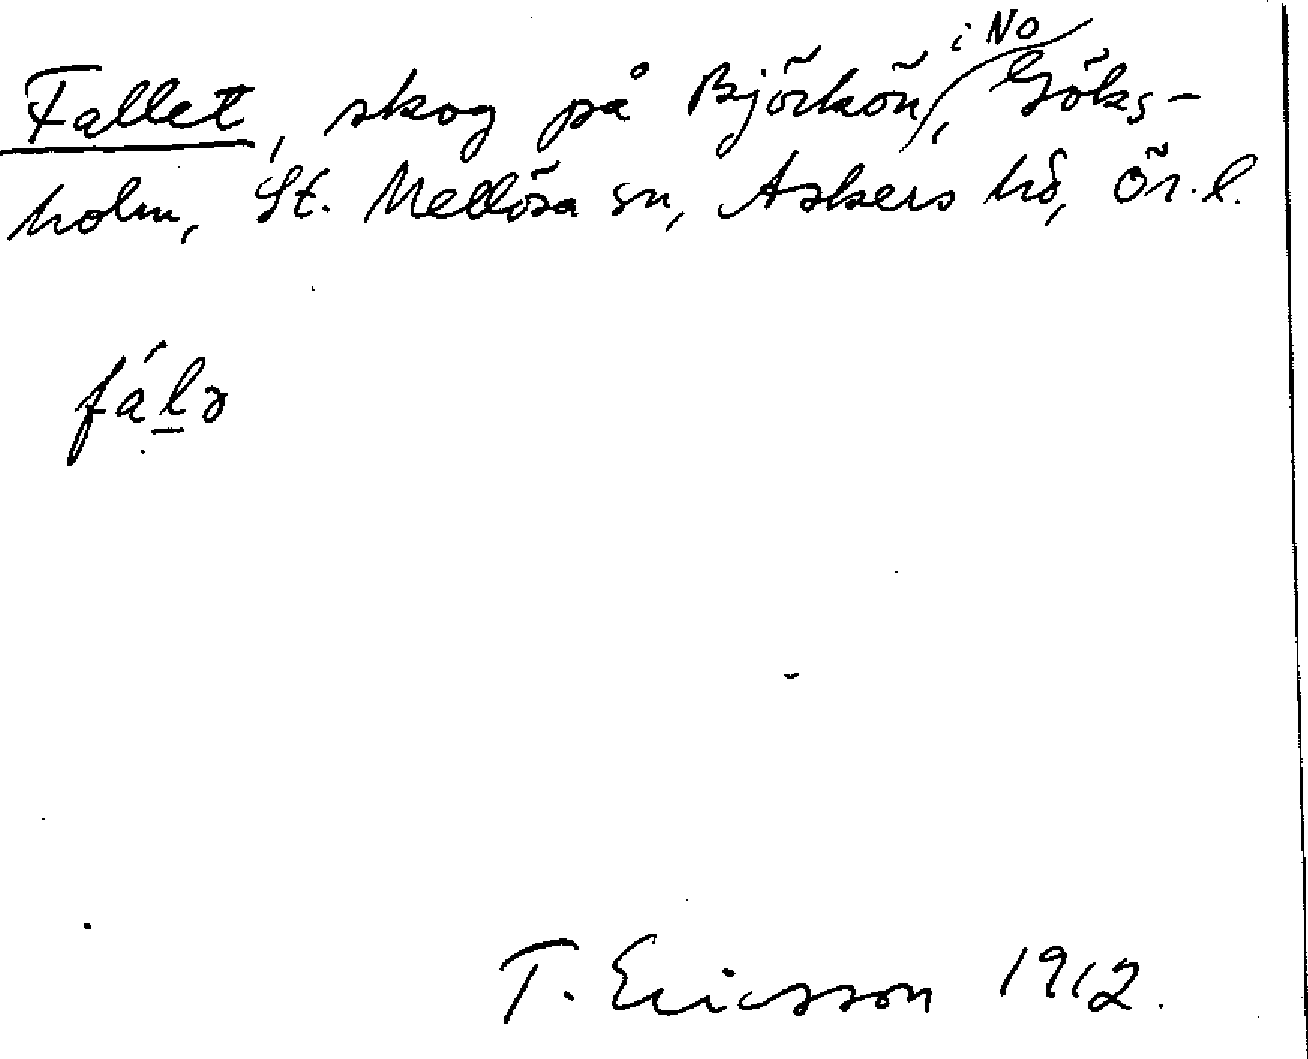 Fallet, skog på Björkön i No, Göks-
holm, St. Mellösa sn, Askers hd, Ör. l.
fálə
T. Ericsson 1912.